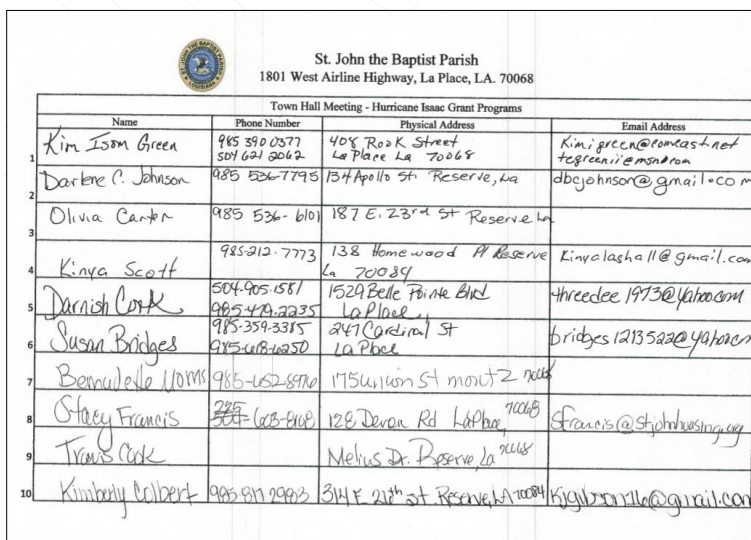 St. John the Baptist Parish
1801 West Airline Highway, La Place, LA. 70068
Town Hall Meeting - Hurricane Isaac Grant Programs
Name Phone Number Physical Address Email Address
1 Kim Isom Green 985 390 0377 408 Rook Street Kimigreen@comcast.net
504 621 2062 La Place La 70068 tegreenii@msn.com
2 Darlene C. Johnson 985 536-7795 134 Apollo St. Reserve, La dbcjohnson@gmail.com
3 Olivia Carter 985 536-6101 187 E. 23rd St Reserve La
4 Kinya Scott 985-212-7773 138 Homewood Pl Reserve Kinyalashall@gmail.com
La 70084
5 Darnish Cork 504-905-1581 1529 Belle Pointe Blvd threedee1973@yahoo.com
985-479-2235 LaPlace,
6 Susan Bridges 985-359-3385 247 Cardinal St bridges1213522@yahoo.com
985-618-6250 La Place
7 Bernadette 985-652-8976 175 Union St 70068
8 Stacy Francis 225 603-8108 128 Devon Rd LaPlace, 70068 sfrancis@stjohnhousing.org
9 Travis Cook Melius Dr. Reserve, La 70068
10 Kimberly Colbert 985-817-2993 314 E 21th St. Reserve, LA 70084 kjgibson16@gmail.com